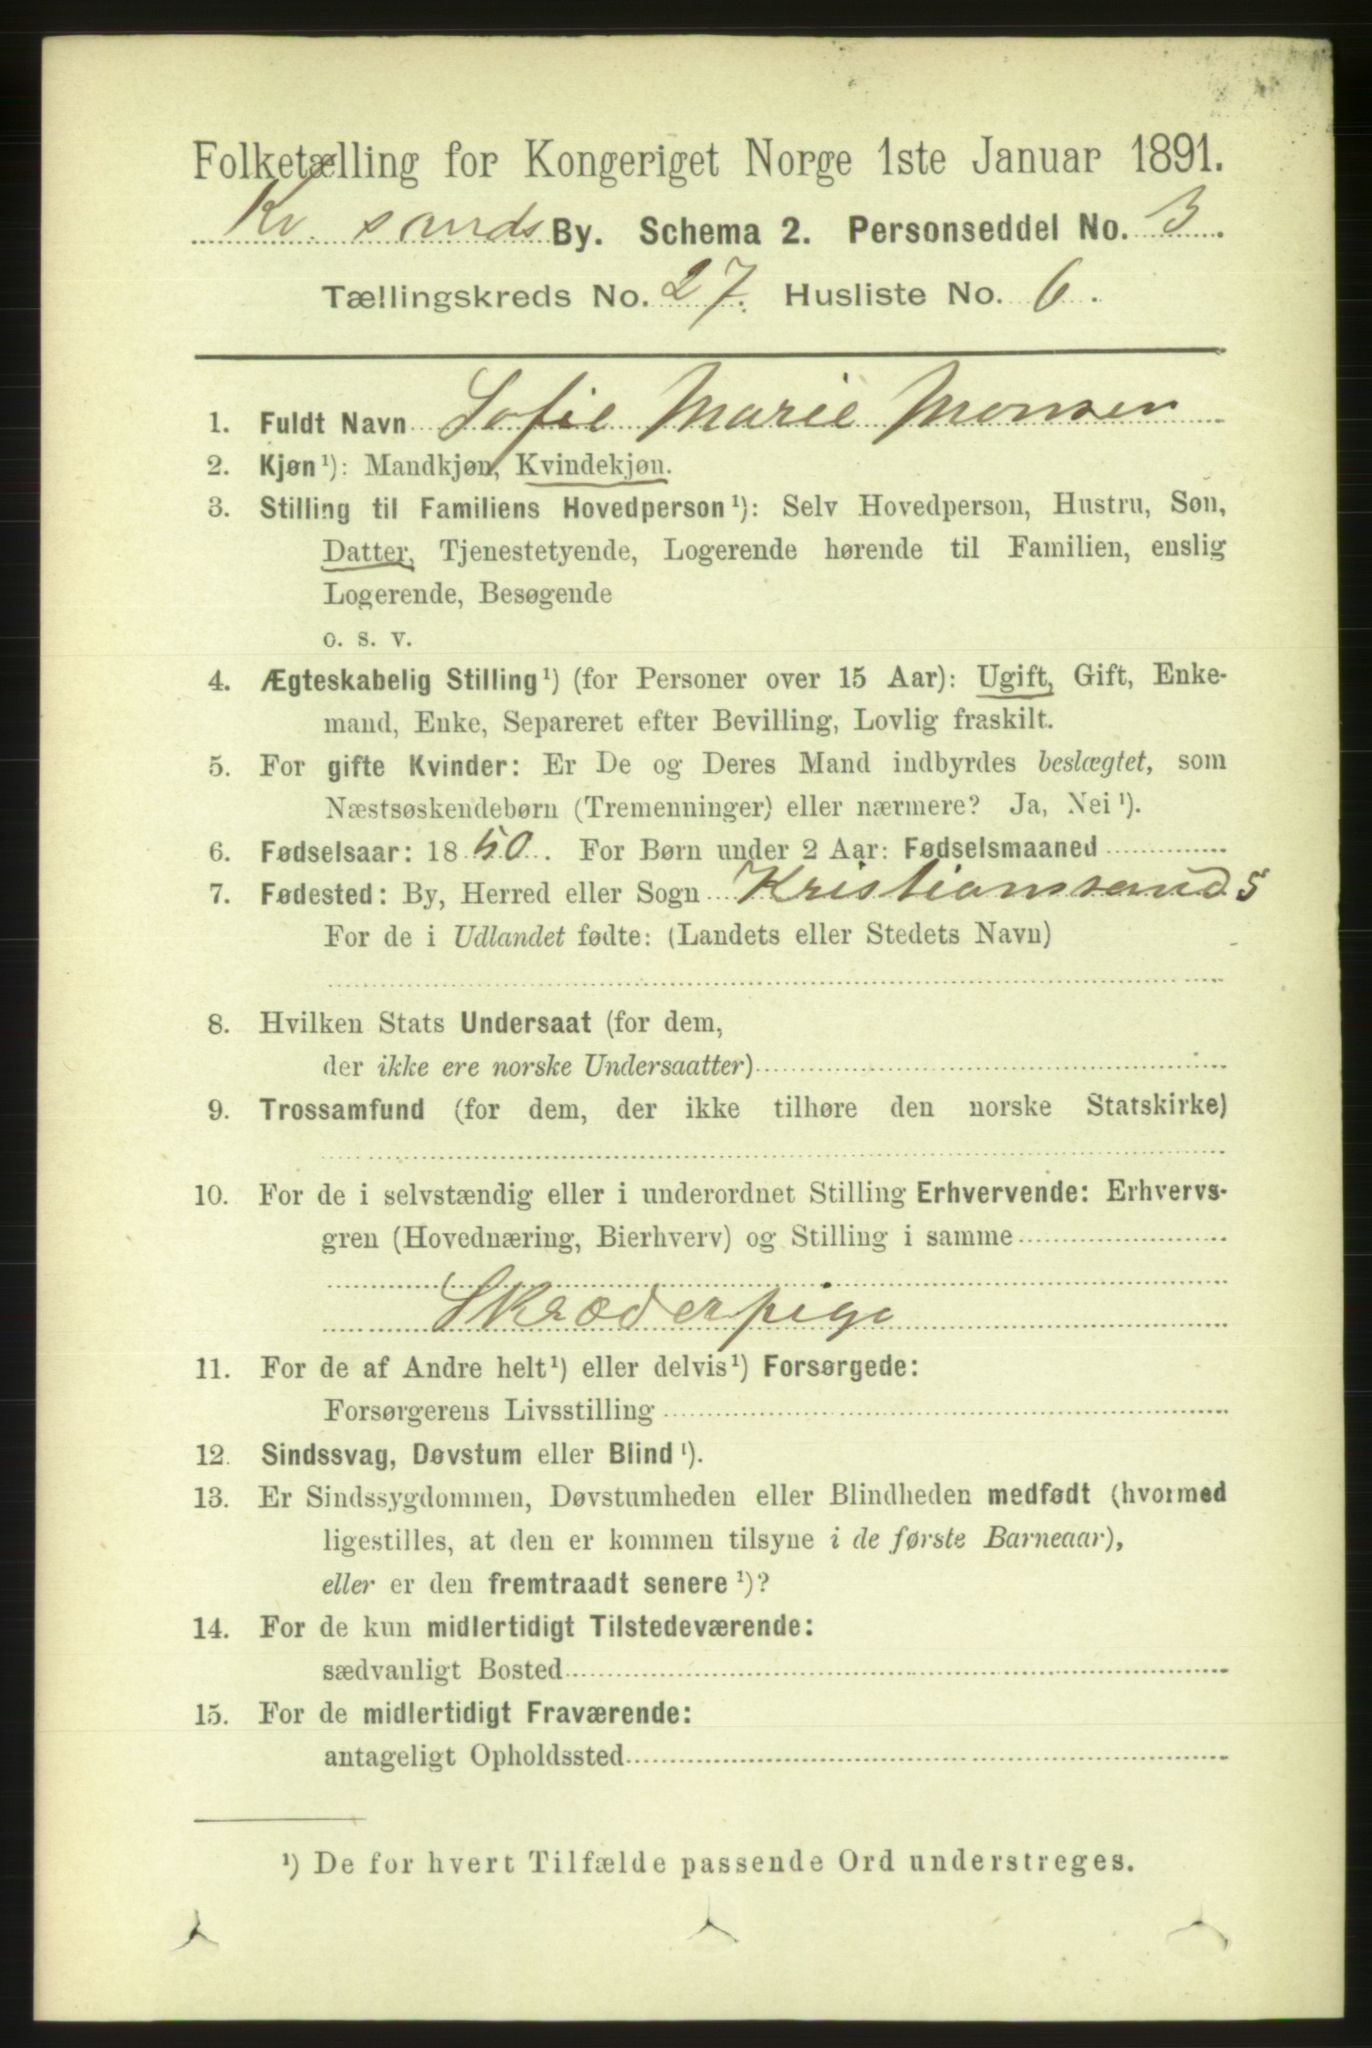 Folketælling for Kongeriget Norge 1ste Januar 1891.
Kr. sands By. Schema 2. Personseddel No. 3.
Tællingskreds No. 27. Husliste No. 6.
1. Fuldt Navn Sofie Marie Monsen
2. Kjøn¹): Mandkjøn, Kvindekjøn.
3. Stilling til Familiens Hovedperson¹): Selv Hovedperson, Hustru, Søn,
Datter, Tjenestetyende, Logerende hørende til Familien, enslig
Logerende, Besøgende
o. s. v.
4. Ægteskabelig Stilling¹) (for Personer over 15 Aar): Ugift, Gift, Enke-
mand, Enke, Separeret efter Bevilling, Lovlig fraskilt.
5. For gifte Kvinder: Er De og Deres Mand indbyrdes beslægtet, som
Næstsøskendebørn (Tremenninger) eller nærmere? Ja, Nei¹).
6. Fødselsaar: 1850. For Børn under 2 Aar: Fødselsmaaned
7. Fødested: By, Herred eller Sogn Kristianssands
For de i Udlandet fødte: (Landets eller Stedets Navn)
8. Hvilken Stats Undersaat (for dem,
der ikke ere norske Undersaatter)
9. Trossamfund (for dem, der ikke tilhøre den norske Statskirke)
10. For de i selvstændig eller i underordnet Stilling Erhvervende: Erhvervs-
gren (Hovednæring, Bierhverv) og Stilling i samme
Skræderpige
11. For de af Andre helt¹) eller delvis¹) Forsørgede:
Forsørgerens Livsstilling
12. Sindssvag, Døvstum eller Blind¹).
13. Er Sindssygdommen, Døvstumheden eller Blindheden medfødt (hvormed
ligestilles, at den er kommen tilsyne i de første Barneaar),
eller er den fremtraadt senere¹)?
14. For de kun midlertidigt Tilstedeværende:
sædvanligt Bosted
15. For de midlertidigt Fraværende:
antageligt Opholdssted
¹) De for hvert Tilfælde passende Ord understreges.